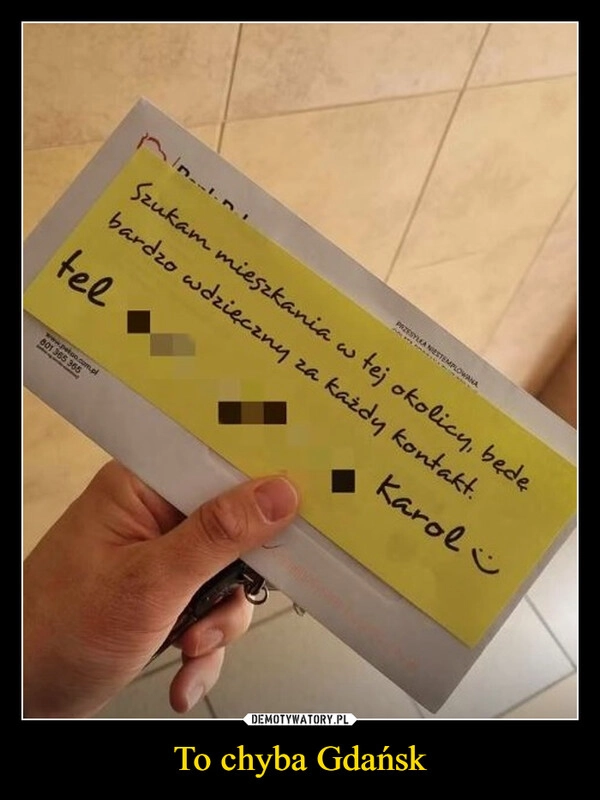 Szukam mieszkania w tej okolicy, będę
bardzo wdzięczny za każdy kontakt.
tel
Karol :)
PRZESYŁKA NIESTEMPLOWANA
801 365 365
DEMOTYWATORY.PL
To chyba Gdańsk